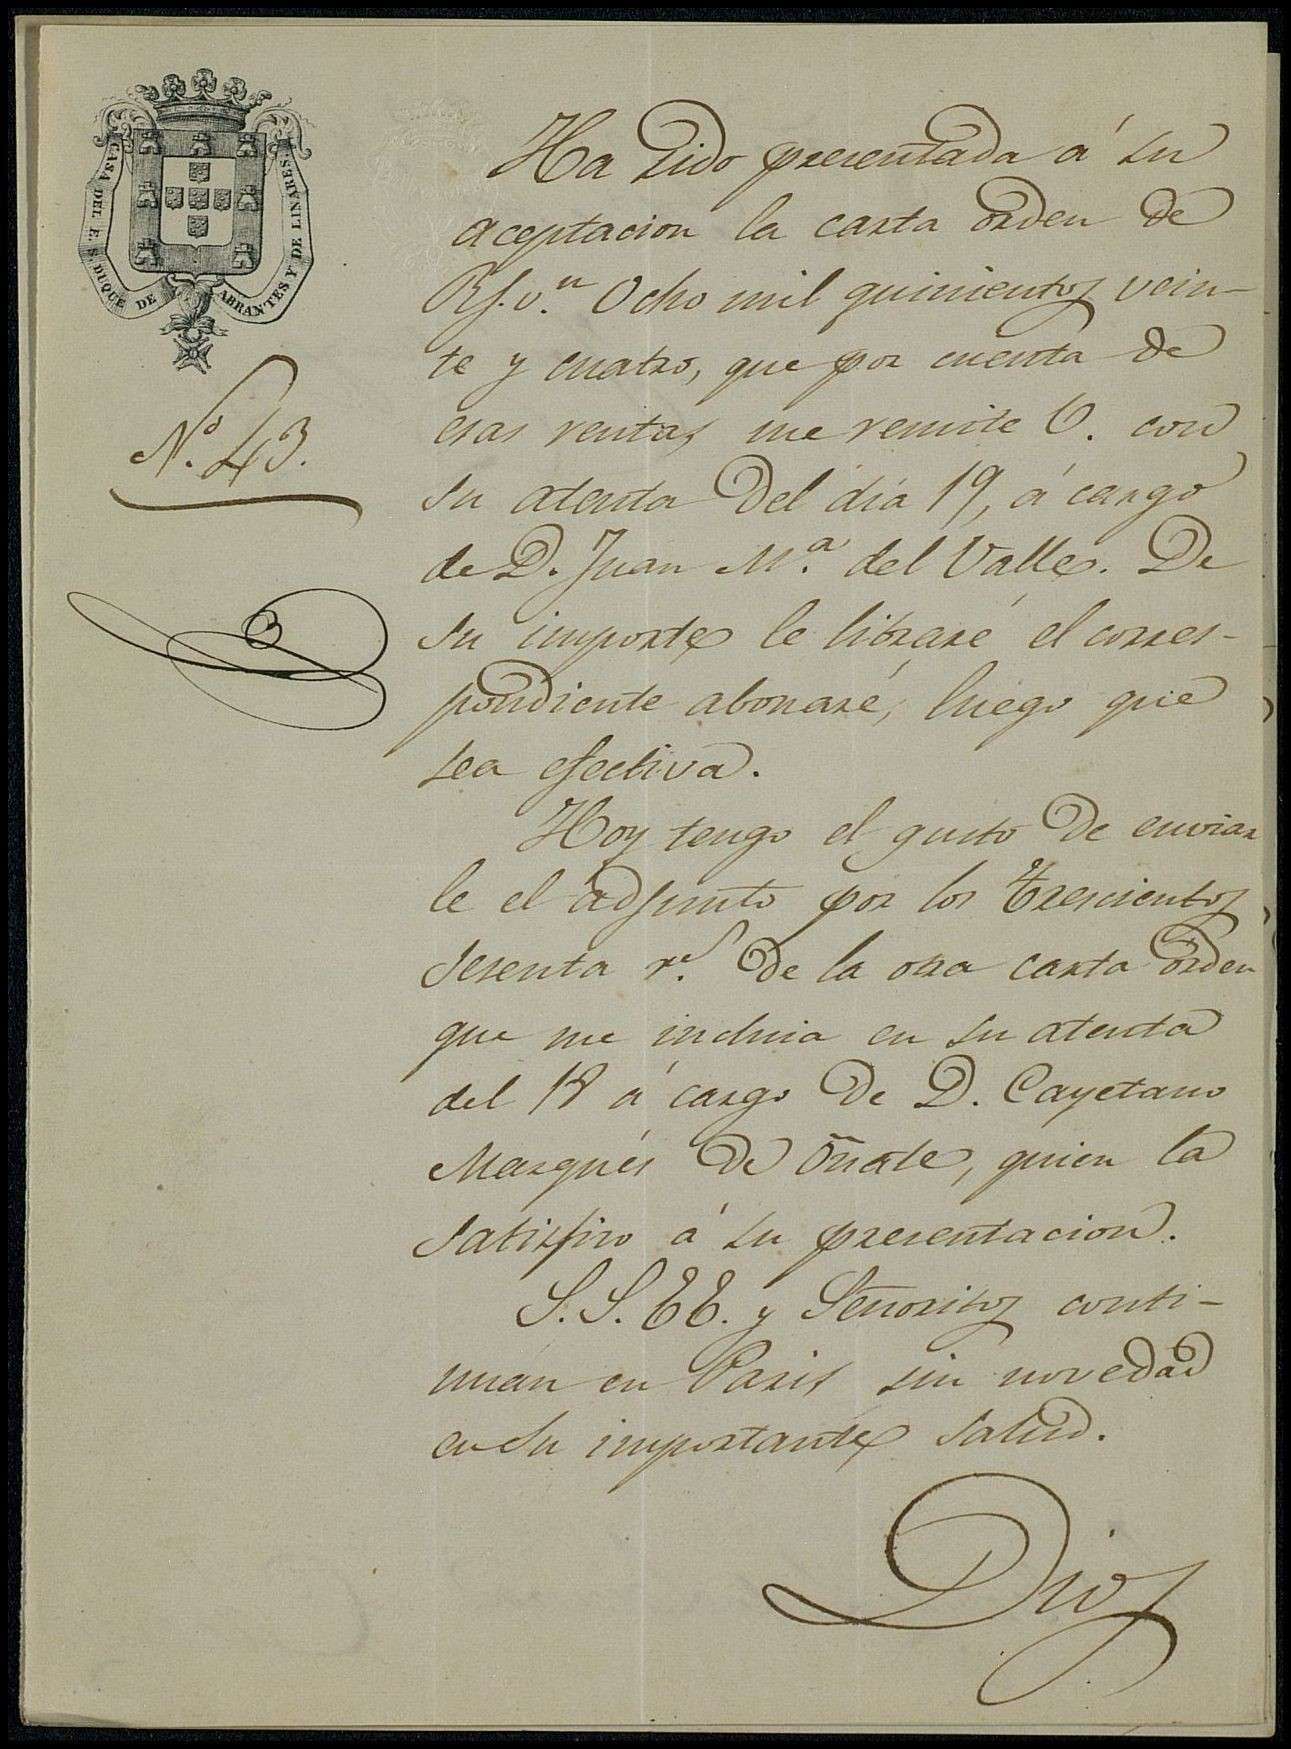 CASA DEL E. S. DUQUE DE ABRANTES Y DE LINARES.
Nº. 43.
3
Ha sido presentada á su
aceptacion la carta orden de
Rs. vn. Ocho mil quinientos vein-
te y cuatro, que por cuenta de
esas rentas me remite V. con
su atenta del dia 19, á cargo
de D. Juan Mª. del Valle. De
su importe le libraré el corres-
pondiente abonaré, luego que
sea efectiva.
Hoy tengo el gusto de enviar
le el adjunto por los trescientos
sesenta rs. de la otra carta orden
que me incluia en su atenta
del 18 á cargo de D. Cayetano
Marqués de Oñate, quien la
satisfizo á su presentacion.
S. S. EE. y Señoritos conti-
nuan en Paris sin novedad
en su importante salud.
Dios